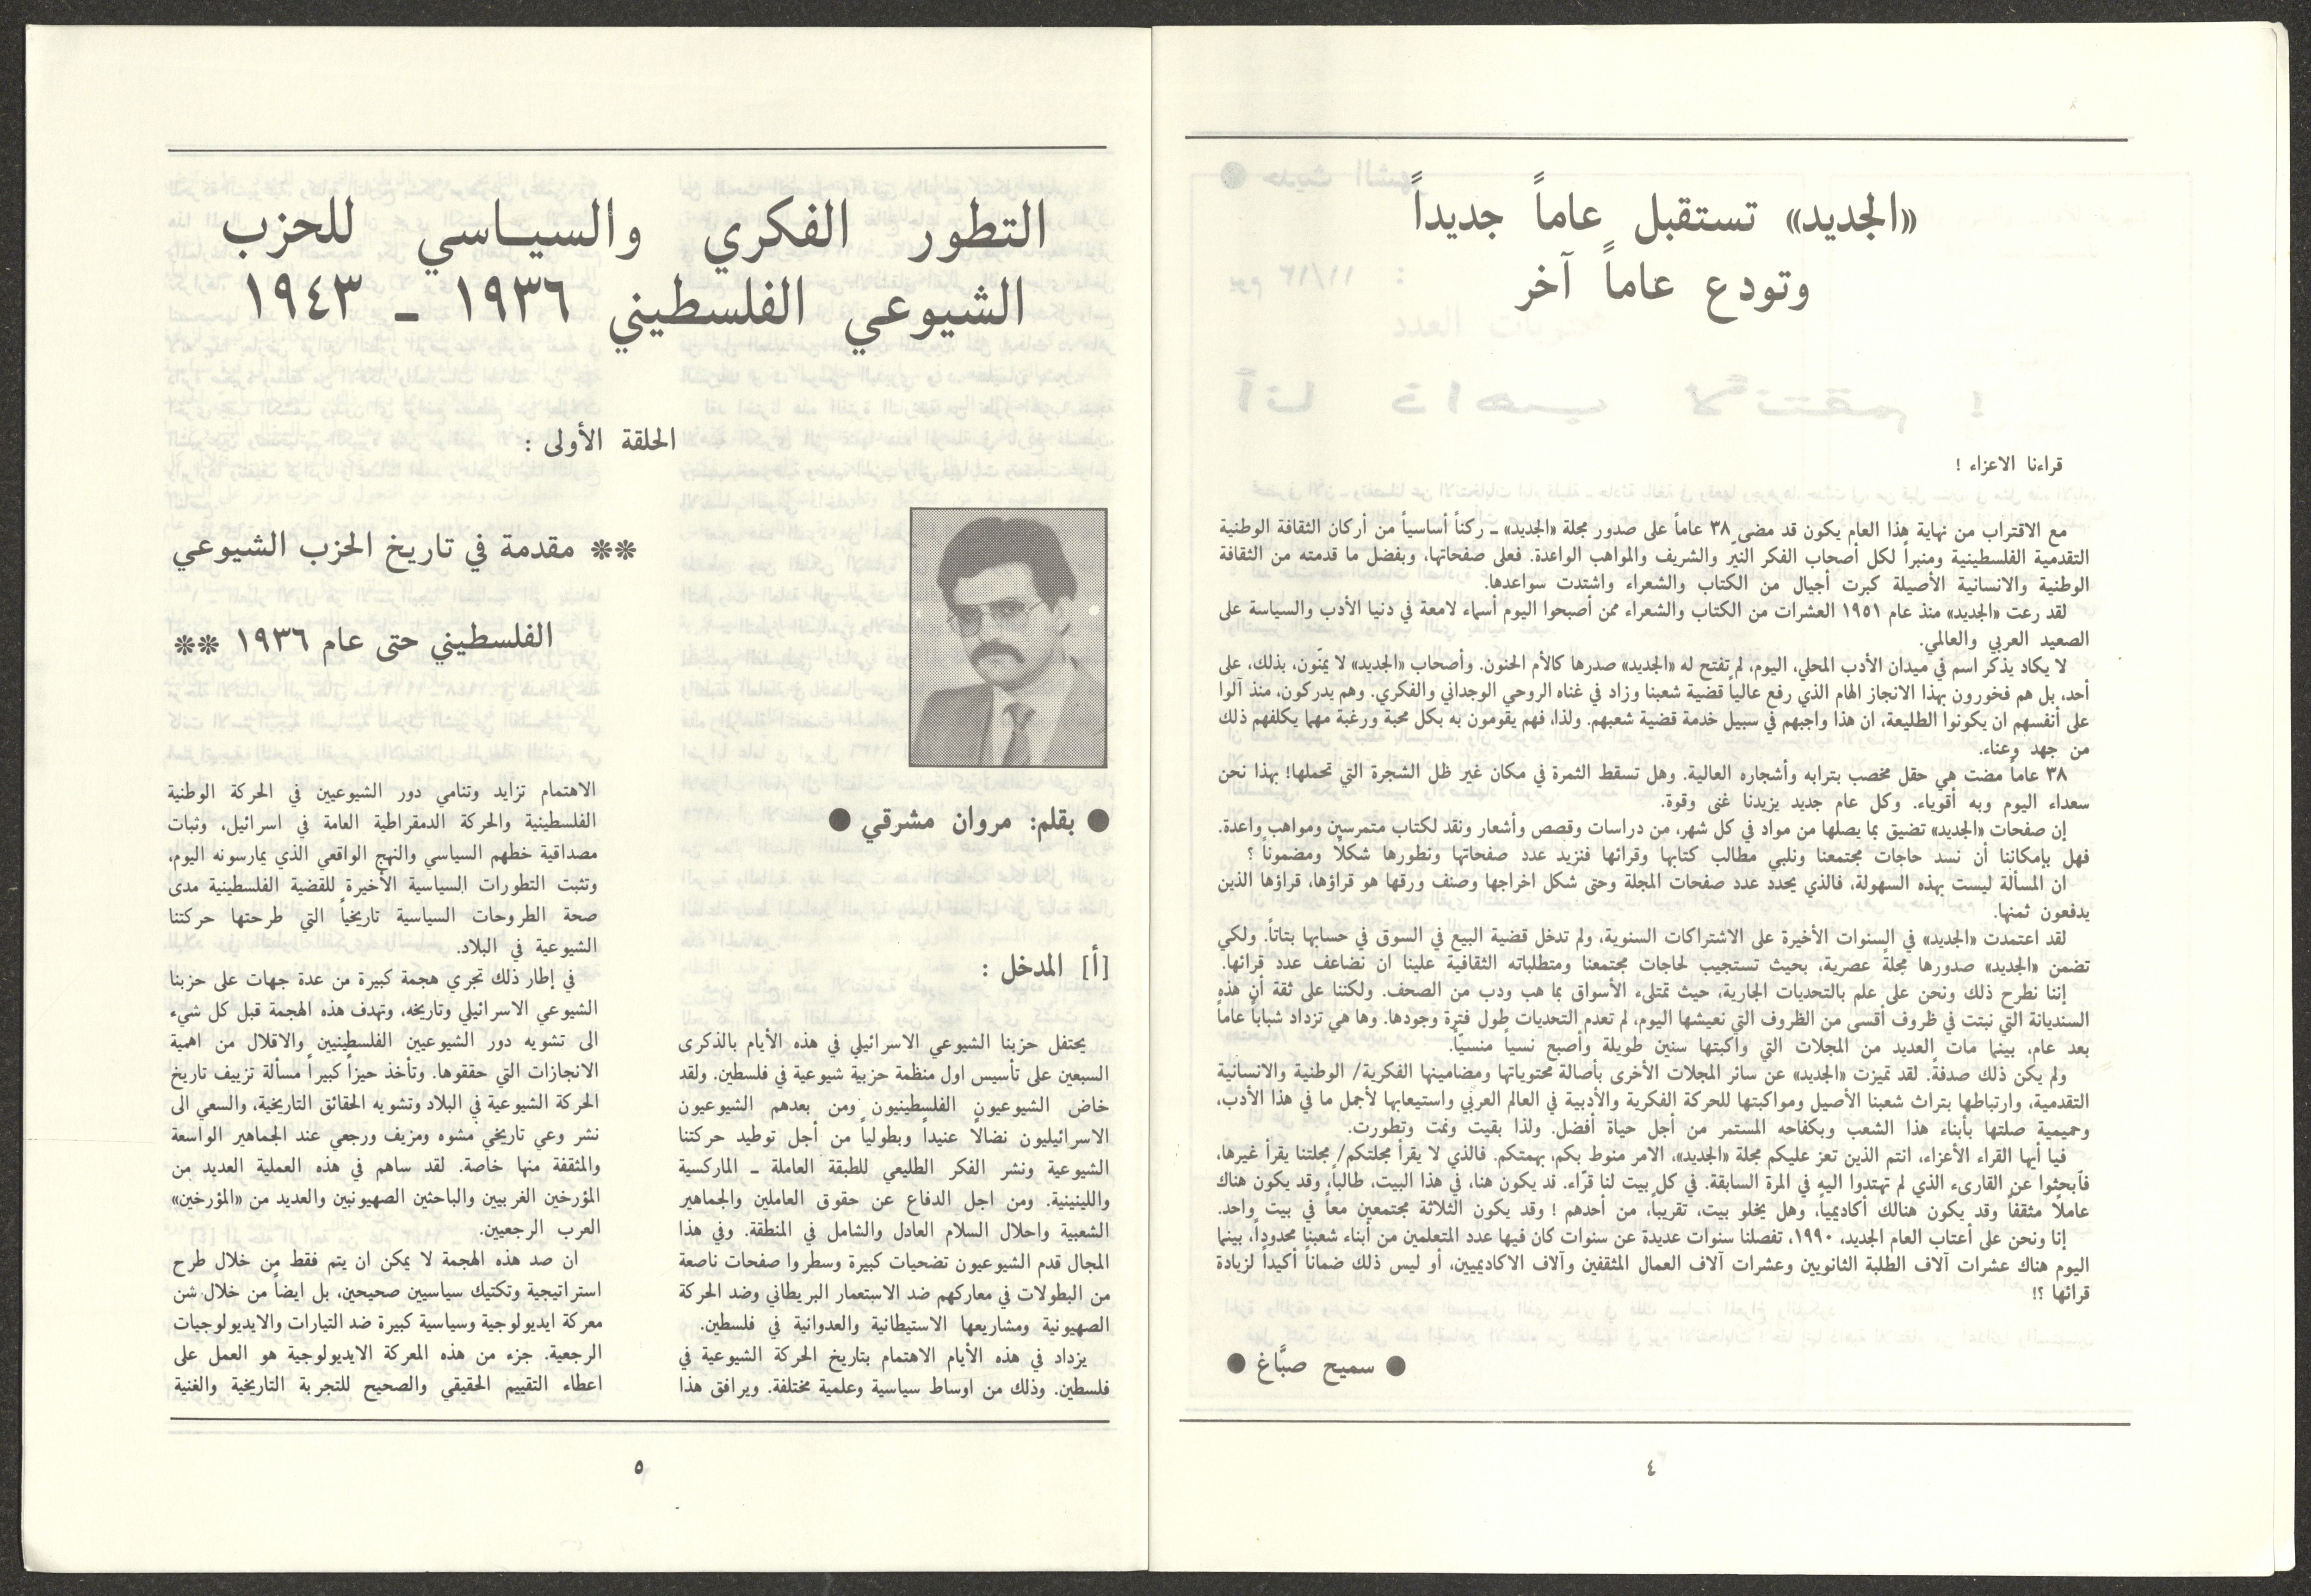 «الجديد» تستقبل عاماً جديداً
وتودع عاماً آخر
قراءنا الاعزاء !
مع الاقتراب من نهاية هذا العام يكون قد مضى ٣٨ عاماً على صدور مجلة «الجديد» ـ ركناً أساسياً من أركان الثقافة الوطنية
التقدمية الفلسطينية ومنبراً لكل أصحاب الفكر النيّر والشريف والمواهب الواعدة. فعلى صفحاتها، وبفضل ما قدمته من الثقافة
الوطنية والانسانية الأصيلة كبرت أجيال من الكتاب والشعراء واشتدت سواعدها.
لقد رعت «الجديد» منذ عام ١٩٥١ العشرات من الكتاب والشعراء ممن أصبحوا اليوم أسماء لامعة في دنيا الأدب والسياسة على
الصعيد العربي والعالمي.
لا يكاد يذكر اسم في ميدان الأدب المحلي، اليوم، لم تفتح له «الجديد» صدرها كالأم الحنون. وأصحاب «الجديد» لا يمنّون، بذلك، على
أحد، بل هم فخورون بهذا الانجاز الهام الذي رفع عالياً قضية شعبنا وزاد في غناه الروحي الوجداني والفكري. وهم يدركون، منذ آلوا
على أنفسهم ان يكونوا الطليعة، ان هذا واجبهم في سبيل خدمة قضية شعبهم. ولذا، فهم يقومون به بكل محبة ورغبة مهما يكلفهم ذلك
من جهد وعناء.
٣٨ عاماً مضت هي حقل مخصب بترابه وأشجاره العالية. وهل تسقط الثمرة في مكان غير ظل الشجرة التي تحملها! بهذا نحن
سعداء اليوم وبه أقوياء. وكل عام جديد يزيدنا غنى وقوة.
إن صفحات «الجديد» تضيق بما يصلها من مواد في كل شهر، من دراسات وقصص وأشعار ونقد لكتاب متمرسين ومواهب واعدة.
فهل بإمكاننا أن نسد حاجات مجتمعنا ونلبي مطالب كتابها وقرائها فنزيد عدد صفحاتها ونطورها شكلاً ومضموناً ؟
ان المسألة ليست بهذه السهولة، فالذي يحدد عدد صفحات المجلة وحتى شكل اخراجها وصنف ورقها هو قراؤها، قراؤها الذين
يدفعون ثمنها.
لقد اعتمدت «الجديد» في السنوات الأخيرة على الاشتراكات السنوية، ولم تدخل قضية البيع في السوق في حسابها بتاتاً. ولكي
تضمن «الجديد» صدورها مجلةً عصرية، بحيث تستجيب لحاجات مجتمعنا ومتطلباته الثقافية علينا ان نضاعف عدد قرائها.
إننا نطرح ذلك ونحن على علم بالتحديات الجارية، حيث تمتلىء الأسواق بما هب ودب من الصحف. ولكننا على ثقة أن هذه
السنديانة التي نبتت في ظروف أقسى من الظروف التي نعيشها اليوم، لم تعدم التحديات طول فترة وجودها. وها هي تزداد شباباً عاماً
بعد عام، بينما مات العديد من المجلات التي واكبتها سنين طويلة وأصبح نسياً منسيّاً.
ولم يكن ذلك صدفةً. لقد تميزت «الجديد» عن سائر المجلات الأخرى بأصالة محتوياتها ومضامينها الفكرية/ الوطنية والانسانية
التقدمية، وارتباطها بتراث شعبنا الأصيل ومواكبتها للحركة الفكرية والأدبية في العالم العربي واستيعابها لأجمل ما في هذا الأدب،
وحميمية صلتها بأبناء هذا الشعب وبكفاحه المستمر من أجل حياة أفضل. ولذا بقيت ونمت وتطورت.
فيا أيها القراء الأعزاء، انتم الذين تعز عليكم مجلة «الجديد»، الامر منوط بكم، بهمتكم. فالذي لا يقرأ مجلتكم/ مجلتنا يقرأ غيرها،
فآبحثوا عن القارىء الذي لم تهتدوا اليه في المرة السابقة. في كل بيت لنا قرّاء. قد يكون هنا، في هذا البيت، طالباً، وقد يكون هناك
عاملاً مثقفاً وقد يكون هنالك أكاديمياً، وهل يخلو بيت، تقريباً، من أحدهم ! وقد يكون الثلاثة مجتمعين معاً في بيت واحد.
إنا ونحن على أعتاب العام الجديد، ١٩٩٠، تفصلنا سنوات عديدة عن سنوات كان فيها عدد المتعلمين من أبناء شعبنا محدوداً، بينما
اليوم هناك عشرات آلاف الطلبة الثانويين وعشرات آلاف العمال المثقفين وآلاف الاكاديميين، أو ليس ذلك ضماناً أكيداً لزيادة
قرائها ؟!
● سميح صبَّاغ ●
٤
التطور الفكري والسياسي للحزب
الشيوعي الفلسطيني ١٩٣٦ ـ ١٩٤٣
الحلقة الأولى :
** مقدمة في تاريخ الحزب الشيوعي
الفلسطيني حتى عام ١٩٣٦ **
● بقلم: مروان مشرقي ●
[أ] المدخل :
يحتفل حزبنا الشيوعي الاسرائيلي في هذه الأيام بالذكرى
السبعين على تأسيس اول منظمة حزبية شيوعية في فلسطين. ولقد
خاض الشيوعيون الفلسطينيون ومن بعدهم الشيوعيون
الاسرائيليون نضالاً عنيداً وبطولياً من أجل توطيد حركتنا
الشيوعية ونشر الفكر الطليعي للطبقة العاملة ـ الماركسية
واللينينية. ومن اجل الدفاع عن حقوق العاملين والجماهير
الشعبية واحلال السلام العادل والشامل في المنطقة. وفي هذا
المجال قدم الشيوعيون تضحيات كبيرة وسطروا صفحات ناصعة
من البطولات في معاركهم ضد الاستعمار البريطاني وضد الحركة
الصهيونية ومشاريعها الاستيطانية والعدوانية في فلسطين.
يزداد في هذه الأيام الاهتمام بتاريخ الحركة الشيوعية في
فلسطين. وذلك من اوساط سياسية وعلمية مختلفة. ويرافق هذا
الاهتمام تزايد وتنامي دور الشيوعيين في الحركة الوطنية
الفلسطينية والحركة الدمقراطية العامة في اسرائيل، وثبات
مصداقية خطهم السياسي والنهج الواقعي الذي يمارسونه اليوم،
وتثبت التطورات السياسية الأخيرة للقضية الفلسطينية مدى
صحة الطروحات السياسية تاريخياً التي طرحتها حركتنا
الشيوعية في البلاد.
في إطار ذلك تجري هجمة كبيرة من عدة جهات على حزبنا
الشيوعي الاسرائيلي وتاريخه، وتهدف هذه الهجمة قبل كل شيء
الى تشويه دور الشيوعيين الفلسطينيين والاقلال من اهمية
الانجازات التي حققوها. وتأخذ حيزاً كبيراً مسألة تزييف تاريخ
الحركة الشيوعية في البلاد وتشويه الحقائق التاريخية، والسعي الى
نشر وعي تاريخي مشوه ومزيف ورجعي عند الجماهير الواسعة
والمثقفة منها خاصة. لقد ساهم في هذه العملية العديد من
المؤرخين الغربيين والباحثين الصهيونيين والعديد من «المؤرخين»
العرب الرجعيين.
ان صد هذه الهجمة لا يمكن ان يتم فقط من خلال طرح
استراتيجية وتكتيك سياسيين صحيحين، بل ايضاً من خلال شن
معركة ايديولوجية وسياسية كبيرة ضد التيارات والايديولوجيات
الرجعية. جزء من هذه المعركة الايديولوجية هو العمل على
اعطاء التقييم الحقيقي والصحيح للتجربة التاريخية والغنية
٥